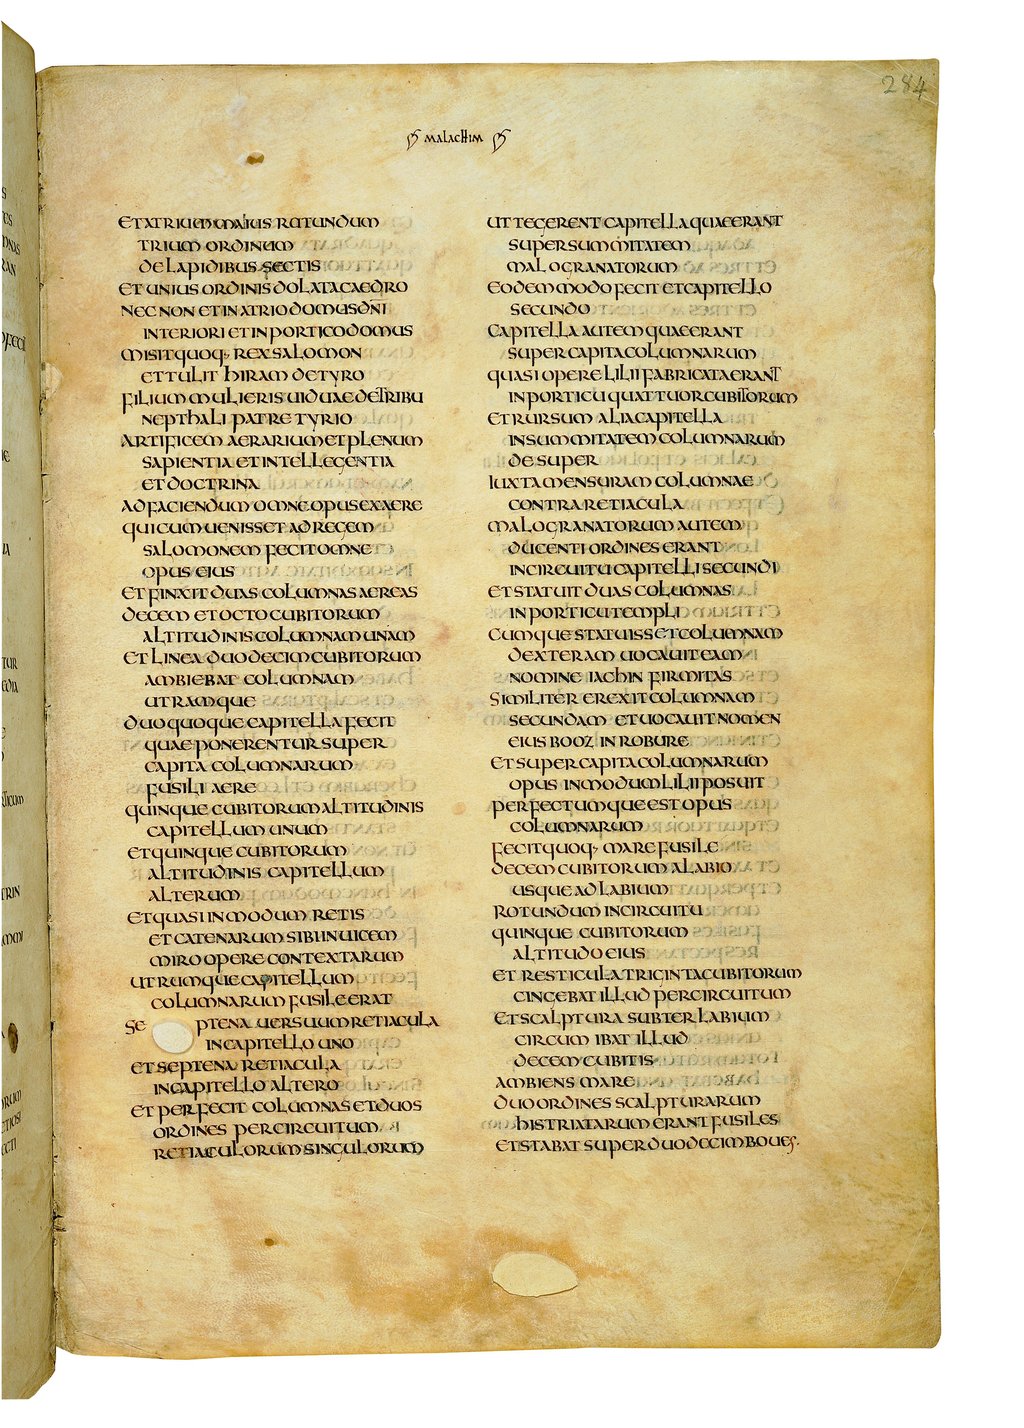 284
MALACHIM
ET ATRIUM MAIUS ROTUNDUM
TRIUM ORDINUM
DE LAPIDIBUS SECTIS
ET UNIUS ORDINIS DOLATA CAEDRO
NEC NON ET IN ATRIO DOMUS DNI
INTERIORI ET IN PORTICO DOMUS
MISIT QUOQ· REX SALOMON
ET TULIT HIRAM DE TYRO
FILIUM MULIERIS UIDUAE DE TRIBU
NEPTHALI PATRE TYRIO
ARTIFICEM AERARIUM ET PLENUM
SAPIENTIA ET INTELLEGENTIA
ET DOCTRINA
AD FACIENDUM OMNE OPUS EX AERE
QUI CUM UENISSET AD REGEM
SALOMONEM FECIT OMNE
OPUS EIUS
ET FINXIT DUAS COLUMNAS AEREAS
DECEM ET OCTO CUBITORUM
ALTITUDINIS COLUMNAM UNAM
ET LINEA DUODECIM CUBITORUM
AMBIEBAT COLUMNAM
UTRAMQUE
DUO QUOQUE CAPITELLA FECIT
QUAE PONERENTUR SUPER
CAPITA COLUMNARUM
FUSILI AERE
QUINQUE CUBITORUM ALTITUDINIS
CAPITELLUM UNUM
ET QUINQUE CUBITORUM
ALTITUDINIS CAPITELLUM
ALTERUM
ET QUASI IN MODUM RETIS
ET CATENARUM SIBI INUICEM
MIRO OPERE CONTEXTARUM
UTRUMQUE CAPITELLUM
COLUMNARUM FUSILE ERAT
SEPTENA UERSUUM RETIACULA
IN CAPITELLO UNO
ET SEPTENA RETIACULA
IN CAPITELLO ALTERO
ET PERFECIT COLUMNAS ET DUOS
ORDINES PER CIRCUITUM
RETIACULORUM SINGULORUM
UT TEGERENT CAPITELLA QUAE ERANT
SUPER SUMMITATEM
MALOGRANATORUM
EODEM MODO FECIT ET CAPITELLO
SECUNDO
CAPITELLA AUTEM QUAE ERANT
SUPER CAPITA COLUMNARUM
QUASI OPERE LILII FABRICATA ERANT
IN PORTICU QUATTUOR CUBITORUM
ET RURSUM ALIA CAPITELLA
IN SUMMITATEM COLUMNARUM
DESUPER
IUXTA MENSURAM COLUMNAE
CONTRA RETIACULA
MALOGRANATORUM AUTEM
DUCENTI ORDINES ERANT
IN CIRCUITU CAPITELLI SECUNDI
ET STATUIT DUAS COLUMNAS
IN PORTICU TEMPLI
CUMQUE STATUISSET COLUMNAM
DEXTERAM UOCAUIT EAM
NOMINE IACHIN FIRMITAS
SIMILITER EREXIT COLUMNAM
SECUNDAM ET UOCAUIT NOMEN
EIUS BOOZ IN ROBURE
ET SUPER CAPITA COLUMNARUM
OPUS IN MODUM LILII POSUIT
PERFECTUMQUE EST OPUS
COLUMNARUM
FECIT QUOQ· MARE FUSILE
DECEM CUBITORUM A LABIO
USQUE AD LABIUM
ROTUNDUM IN CIRCUITU
QUINQUE CUBITORUM
ALTITUDO EIUS
ET RESTICULA TRIGINTA CUBITORUM
CINGEBAT ILLUD PER CIRCUITUM
ET SCALPTURA SUBTER LABIUM
CIRCUMIBAT ILLUD
DECEM CUBITIS
AMBIENS MARE
DUO ORDINES SCALPTURARUM
HISTRIATARUM ERANT FUSILES
ET STABAT SUPER DUODECIM BOUES·